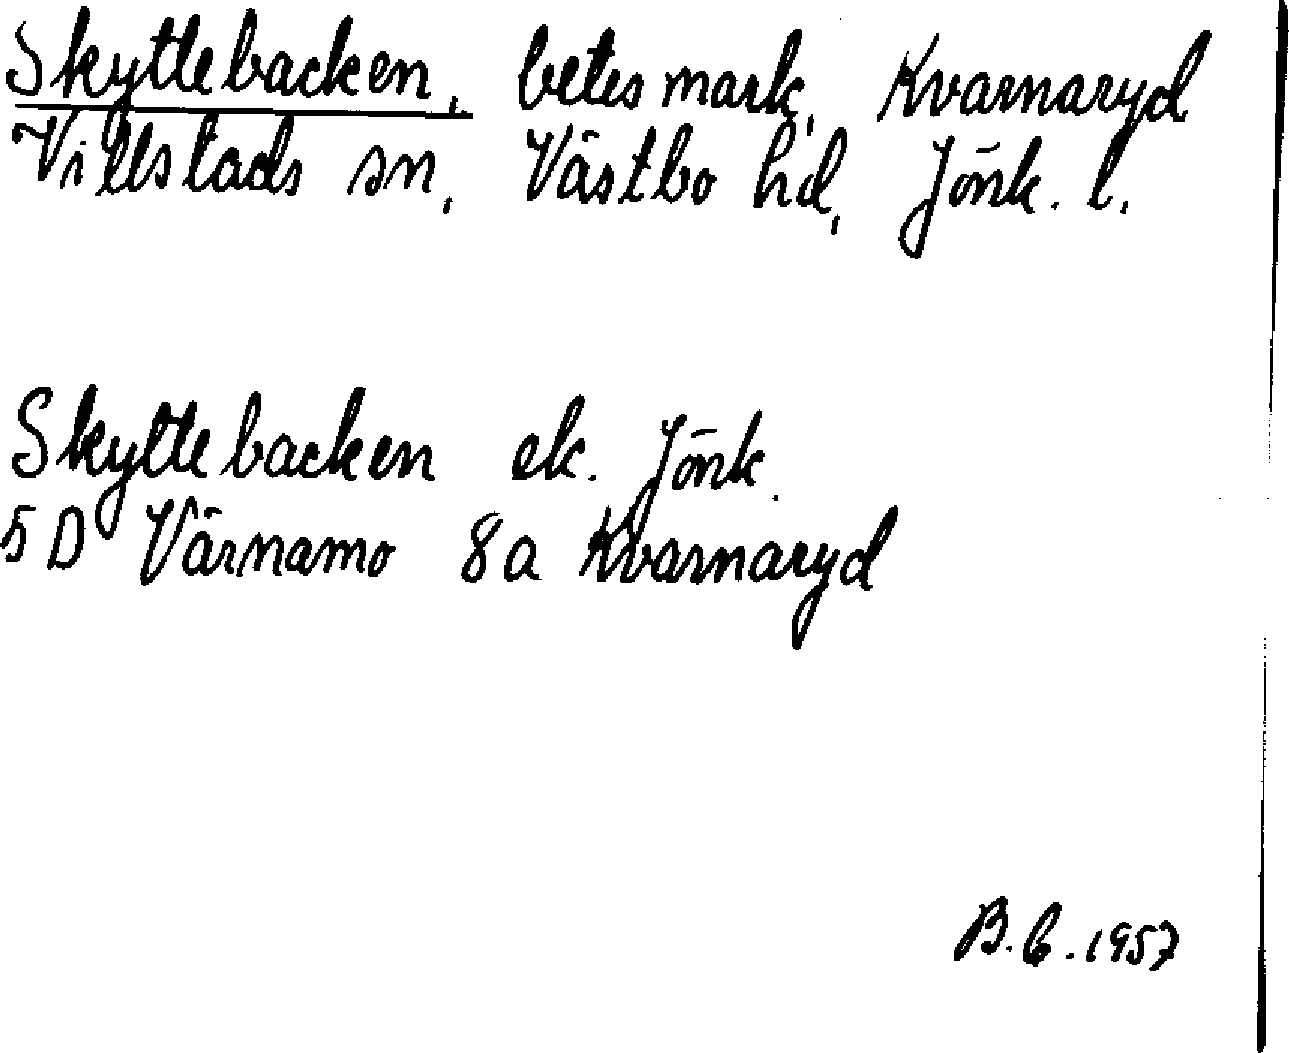 Skyttebacken, betesmark, Kvarnaryd
Villstads sn, Västbo hd, Jönk. l.
Skyttebacken ek. Jönk.
5 D Värnamo 8a Kvarnaryd
B. C. 1957